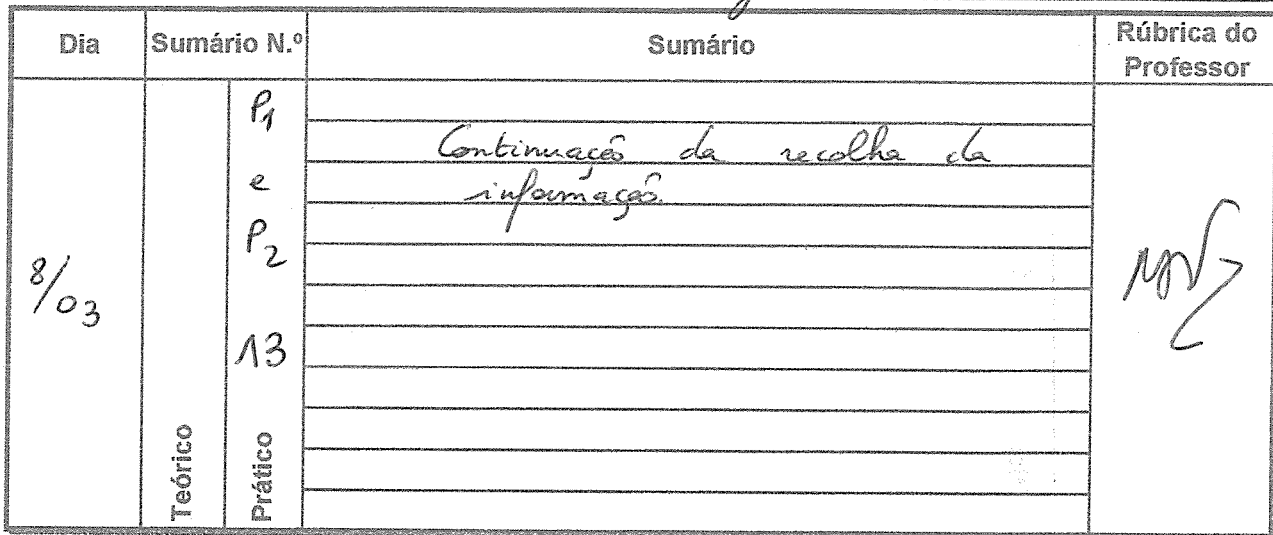 Dia
Sumário N.º
Sumário
Rúbrica do
Professor
8/03
Teórico
P1
e
P2
13
Prático
Continuação da recolha da
informação.